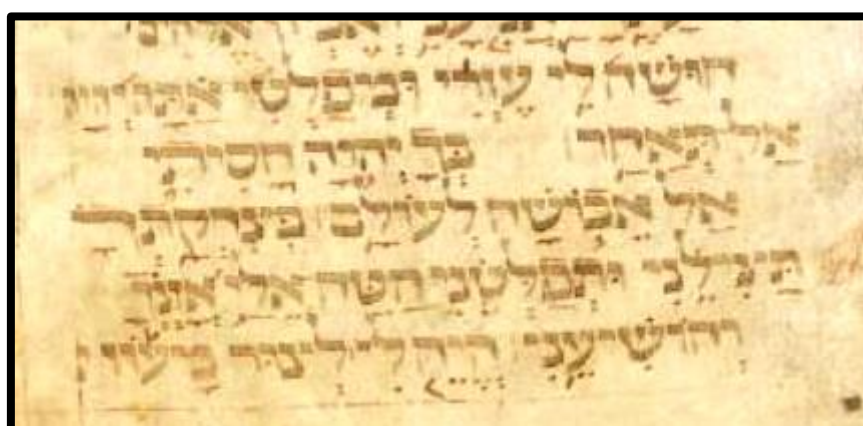 חוּשָׁה לִּי עֶזְרִי וּמְפַלְטִי אַתָּה יְהוָה
אַל תְּאַחַר בְּךָ יְהוָה חָסִיתִי
אַל אֵבוֹשָׁה לְעוֹלָם בְּצִדְקָתְךָ
תַּצִּילֵנִי וּתְפַלְּטֵנִי הַטֵּה אֵלַי אָזְנְךָ
וְהוֹשִׁיעֵנִי הֱיֵה לִי לְצוּר מָעוֹן